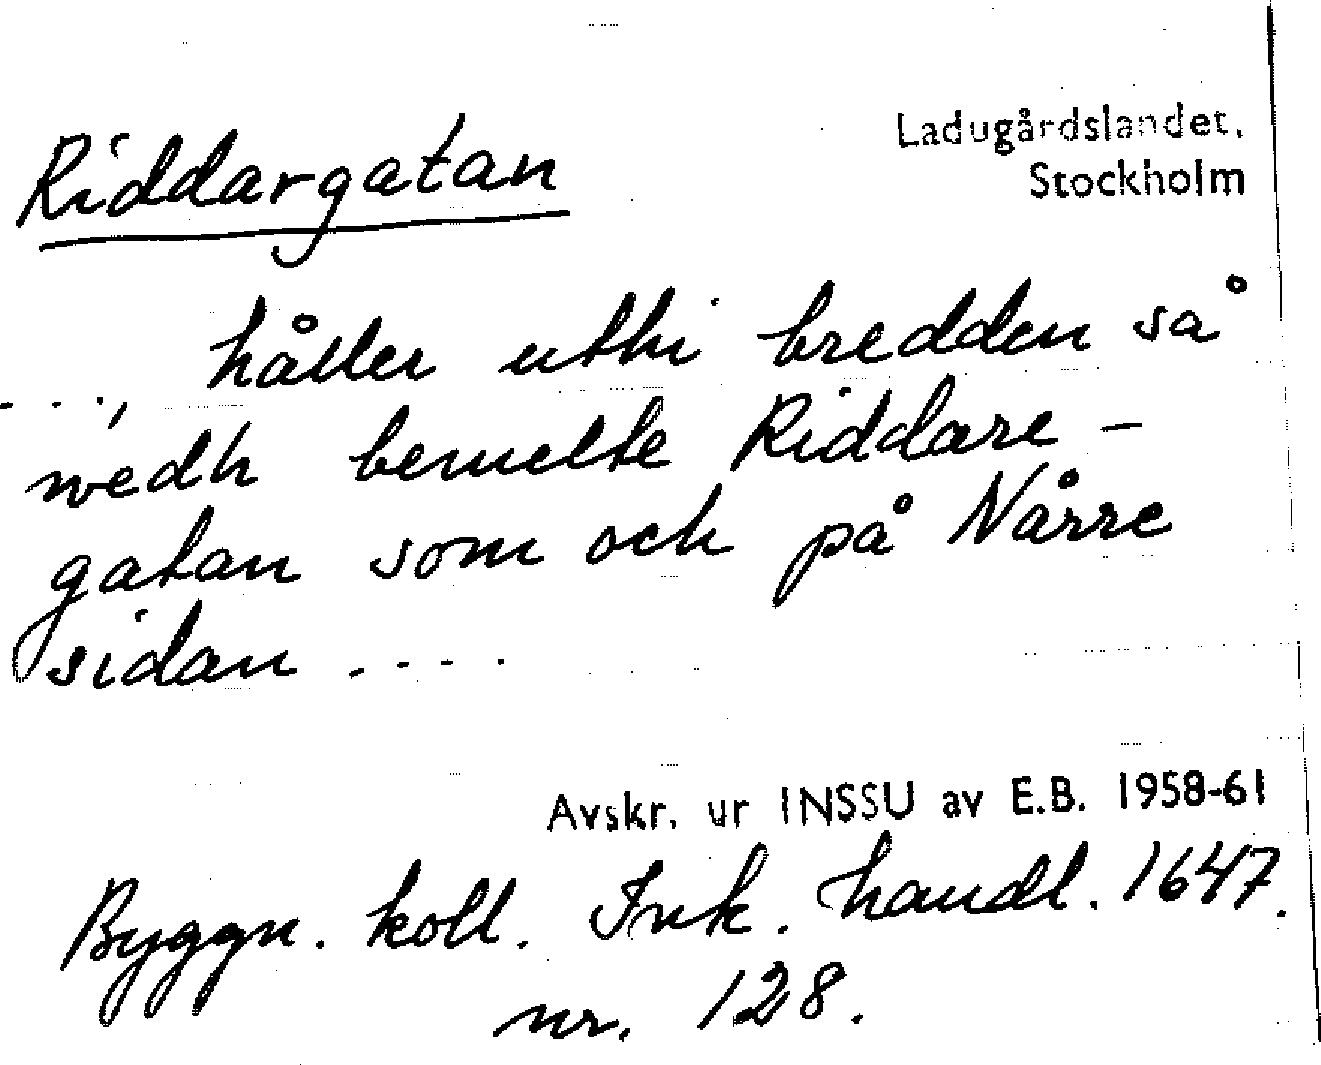 Riddargatan
Ladugårdslandet.
Stockholm
...., håller uthi bredden så
wedh bemelte Riddare-
gatan som och på Nårre
sidan ....
Avskr. ur INSSU av E.B. 1958-61
Byggn. koll. Ink. handl. 1647.
nr. 128.